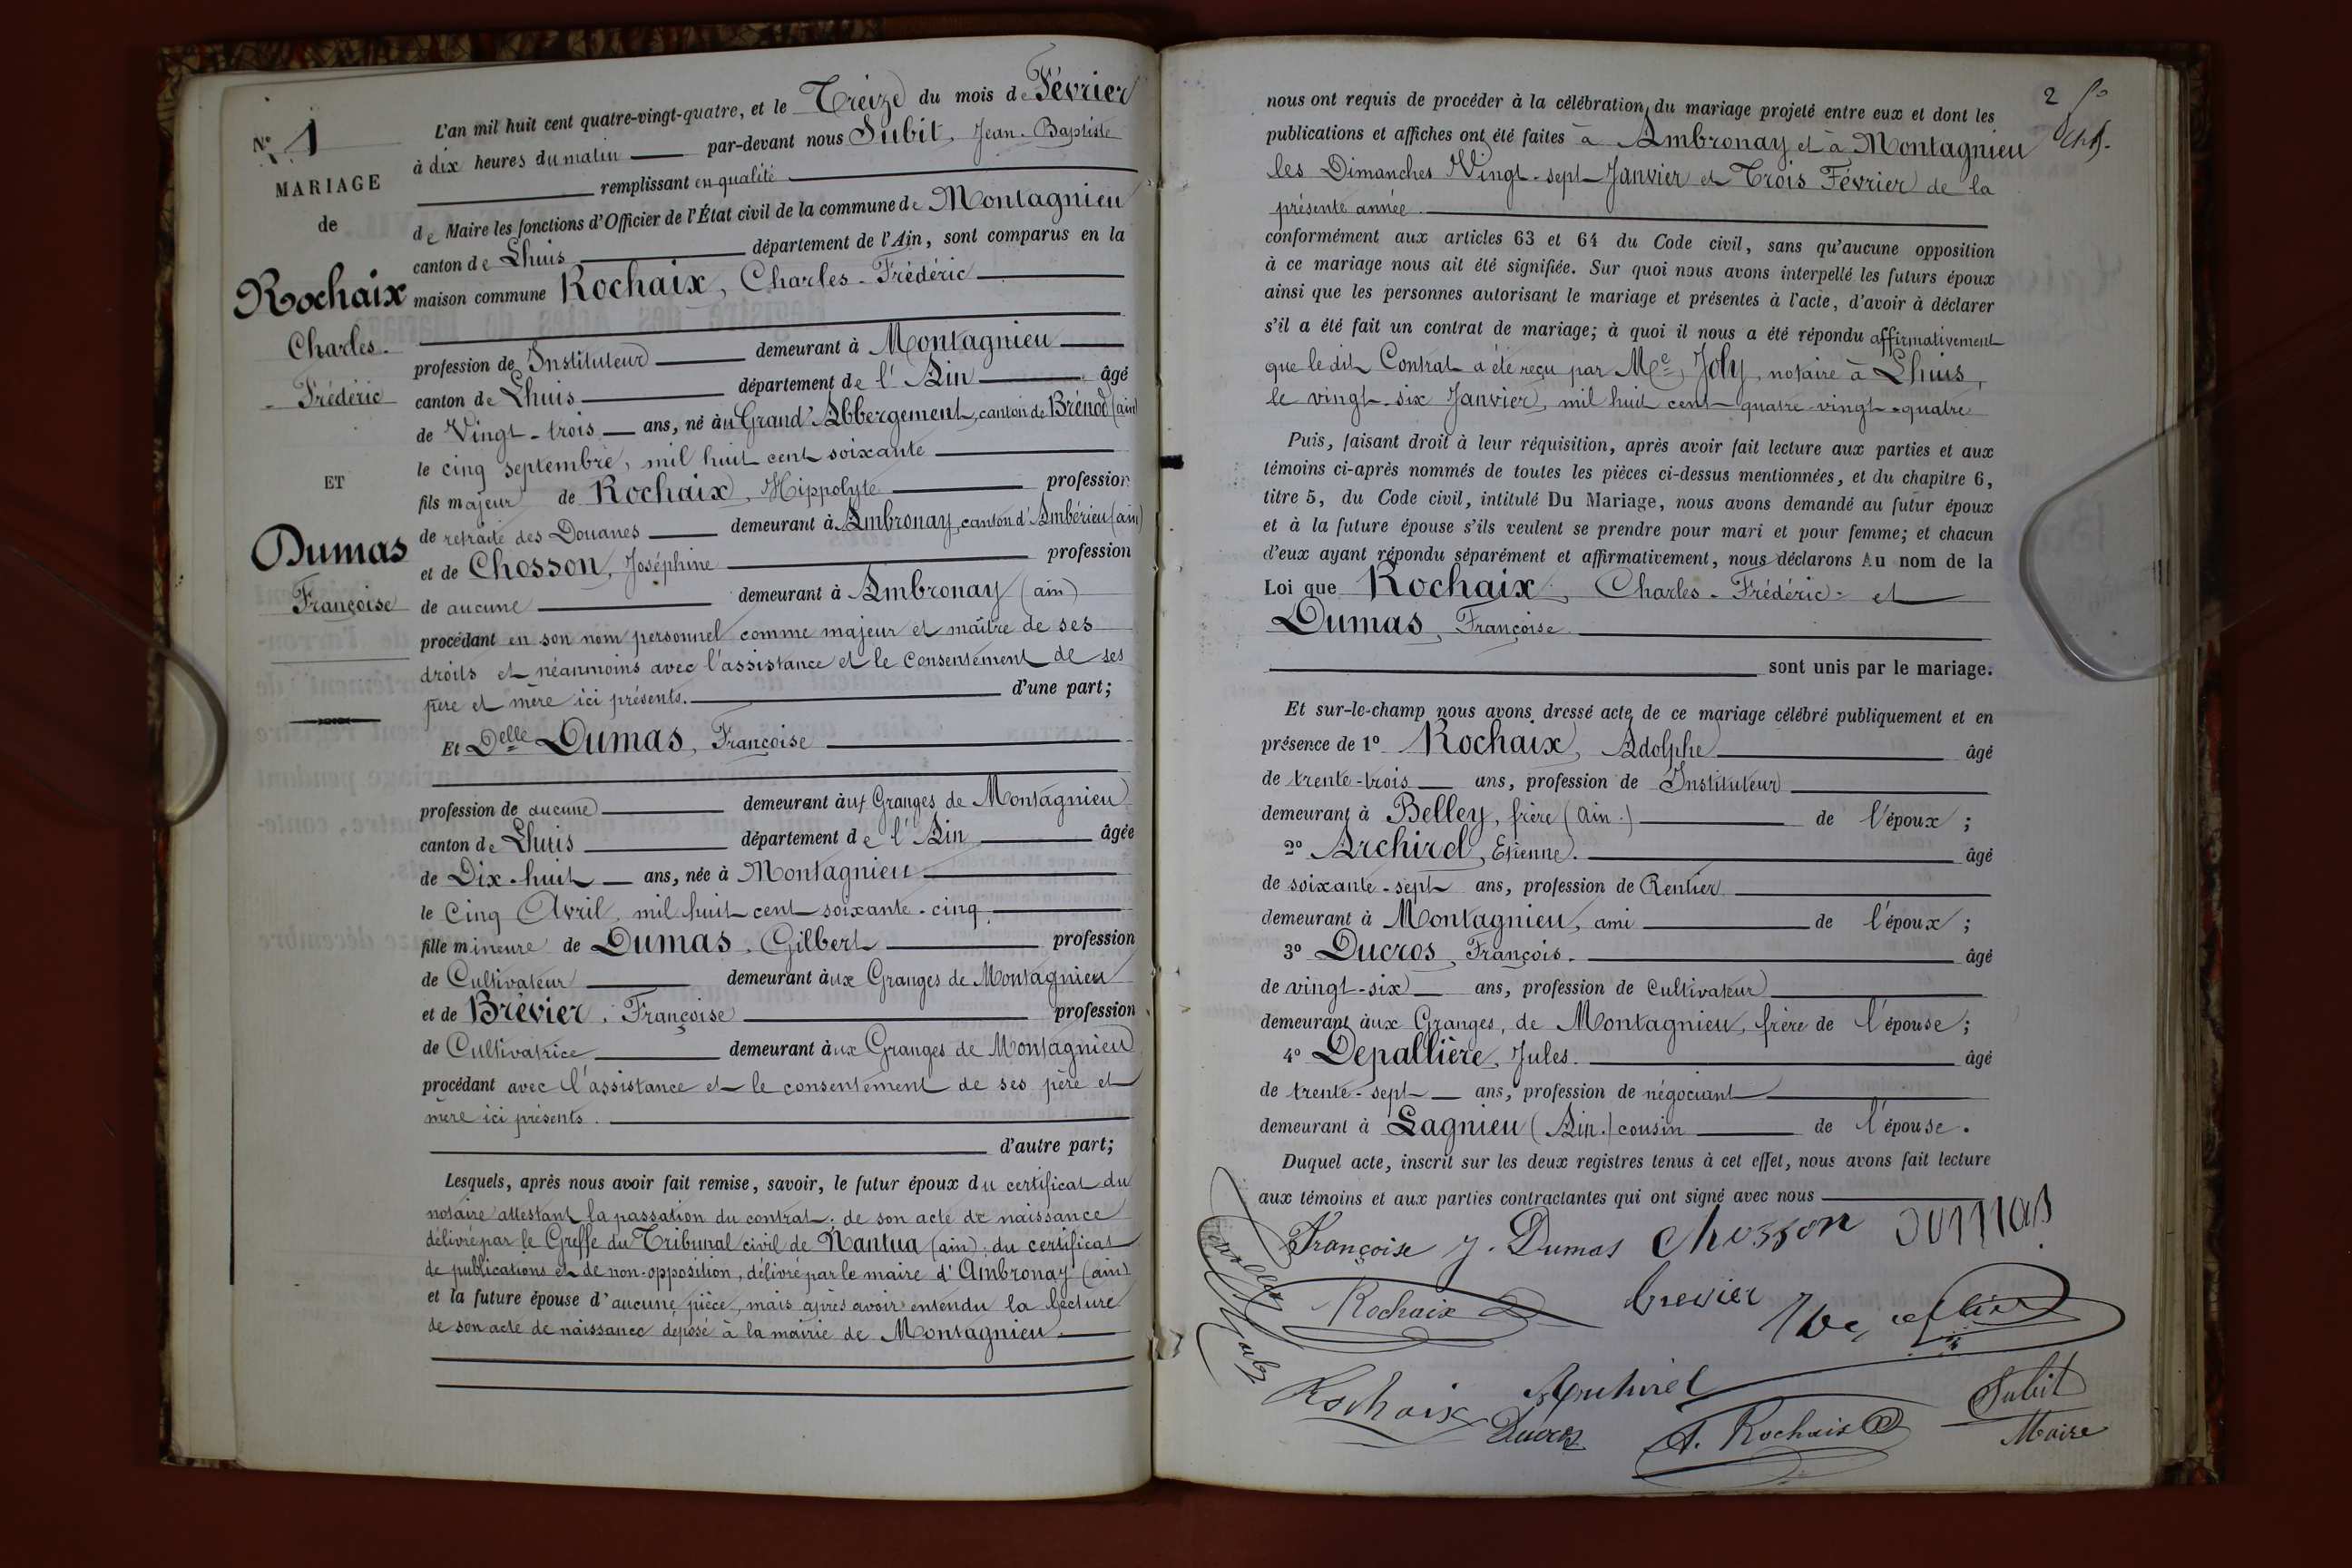 N° 1
MARIAGE
de
Rochaix
Charles-
Frédéric
ET
Dumas
Françoise
L'an mil huit cent quatre-vingt-quatre, et le Treize du mois de Février
à dix heures du matin par-devant nous Subit, Jean-Baptiste
remplissant en qualité
de Maire les fonctions d'Officier de l'État civil de la commune de Montagnieu
canton de Lhuis département de l'Ain, sont comparus en la
maison commune Rochaix, Charles-Frédéric
profession de Instituteur demeurant à Montagnieu
canton de Lhuis département de l'Ain âgé
de Vingt-trois ans, né au Grand'Abbergement, canton de Brénod (ain)
le cinq septembre, mil huit cent soixante
fils majeur de Rochaix, Hippolyte profession
de retraité des Douanes demeurant à Ambronay, canton d'Ambérieu (ain)
et de Chosson, Joséphine profession
de aucune demeurant à Ambronay (ain)
procédant en son nom personnel comme majeur et maître de ses
droits et néanmoins avec l'assistance et le consentement de ses
père et mère ici présents. d'une part;
Et Delle Dumas, Françoise
profession de aucune demeurant aux Granges de Montagnieu
canton de Lhuis département de l'Ain âgée
de Dix-huit ans, née à Montagnieu
le Cinq Avril, mil huit cent soixante-cinq
fille mineure de Dumas, Gilbert profession
de Cultivateur demeurant aux Granges de Montagnieu
et de Brévier, Françoise profession
de Cultivatrice demeurant aux Granges de Montagnieu
procédant avec l'assistance et le consentement de ses père et
mère ici présents.
d'autre part;
Lesquels, après nous avoir fait remise, savoir, le futur époux du certificat du
notaire attestant la passation du contrat; de son acte de naissance
délivré par le Greffe du Tribunal civil de Nantua (ain); du certificat
de publications et de non-opposition, délivré par le maire d'Ambronay (ain)
et la future épouse d'aucune pièce, mais après avoir entendu la lecture
de son acte de naissance déposé à la mairie de Montagnieu.
2
nous ont requis de procéder à la célébration du mariage projeté entre eux et dont les
publications et affiches ont été faites à Ambronay et à Montagnieu
les Dimanches Vingt-sept Janvier et Trois Février de la
présente année.
conformément aux articles 63 et 64 du Code civil, sans qu'aucune opposition
à ce mariage nous ait été signifiée. Sur quoi nous avons interpellé les futurs époux
ainsi que les personnes autorisant le mariage et présentes à l'acte, d'avoir à déclarer
s'il a été fait un contrat de mariage; à quoi il nous a été répondu affirmativement
que le dit Contrat a été reçu par Me Joly, notaire à Lhuis,
le vingt-six Janvier, mil huit cent quatre-vingt-quatre
Puis, faisant droit à leur réquisition, après avoir fait lecture aux parties et aux
témoins ci-après nommés de toutes les pièces ci-dessus mentionnées, et du chapitre 6,
titre 5, du Code civil, intitulé Du Mariage, nous avons demandé au futur époux
et à la future épouse s'ils veulent se prendre pour mari et pour femme; et chacun
d'eux ayant répondu séparément et affirmativement, nous déclarons Au nom de la
Loi que Rochaix, Charles-Frédéric et
Dumas, Françoise
sont unis par le mariage.
Et sur-le-champ nous avons dressé acte de ce mariage célébré publiquement et en
présence de 1° Rochaix, Adolphe âgé
de trente-trois ans, profession de Instituteur
demeurant à Belley, frère (Ain.) de l'époux;
2° Archird, Etienne. âgé
de soixante-sept ans, profession de Rentier
demeurant à Montagnieu, ami de l'époux;
3° Ducros, François. âgé
de vingt-six ans, profession de Cultivateur
demeurant aux Granges, de Montagnieu, frère de l'épouse;
4° Depallière, Jules. âgé
de trente-sept ans, profession de négociant
demeurant à Lagnieu (Ain.) cousin de l'épouse.
Duquel acte, inscrit sur les deux registres tenus à cet effet, nous avons fait lecture
aux témoins et aux parties contractantes qui ont signé avec nous
Françoise Dumas Chosson Dumas
Rochaix brevier
Rochaix Archird Subit
Ducros A. Rochaix Maire